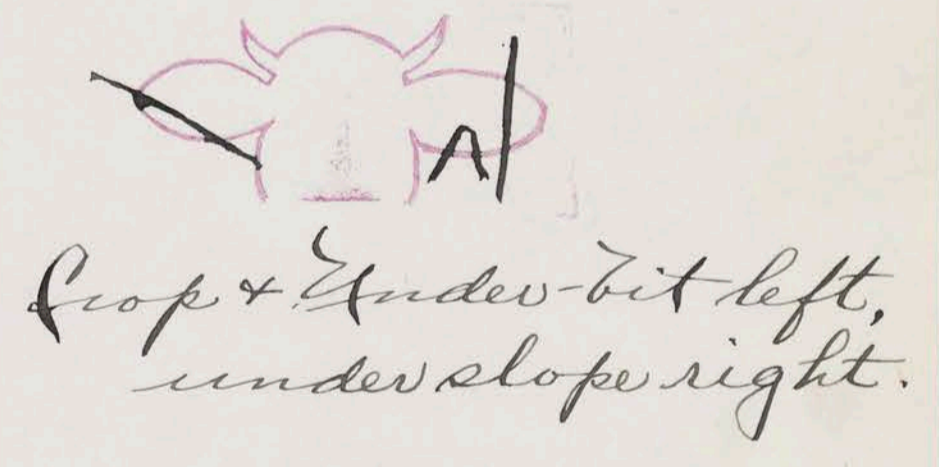 Crop & Under-bit left,
under slope right.